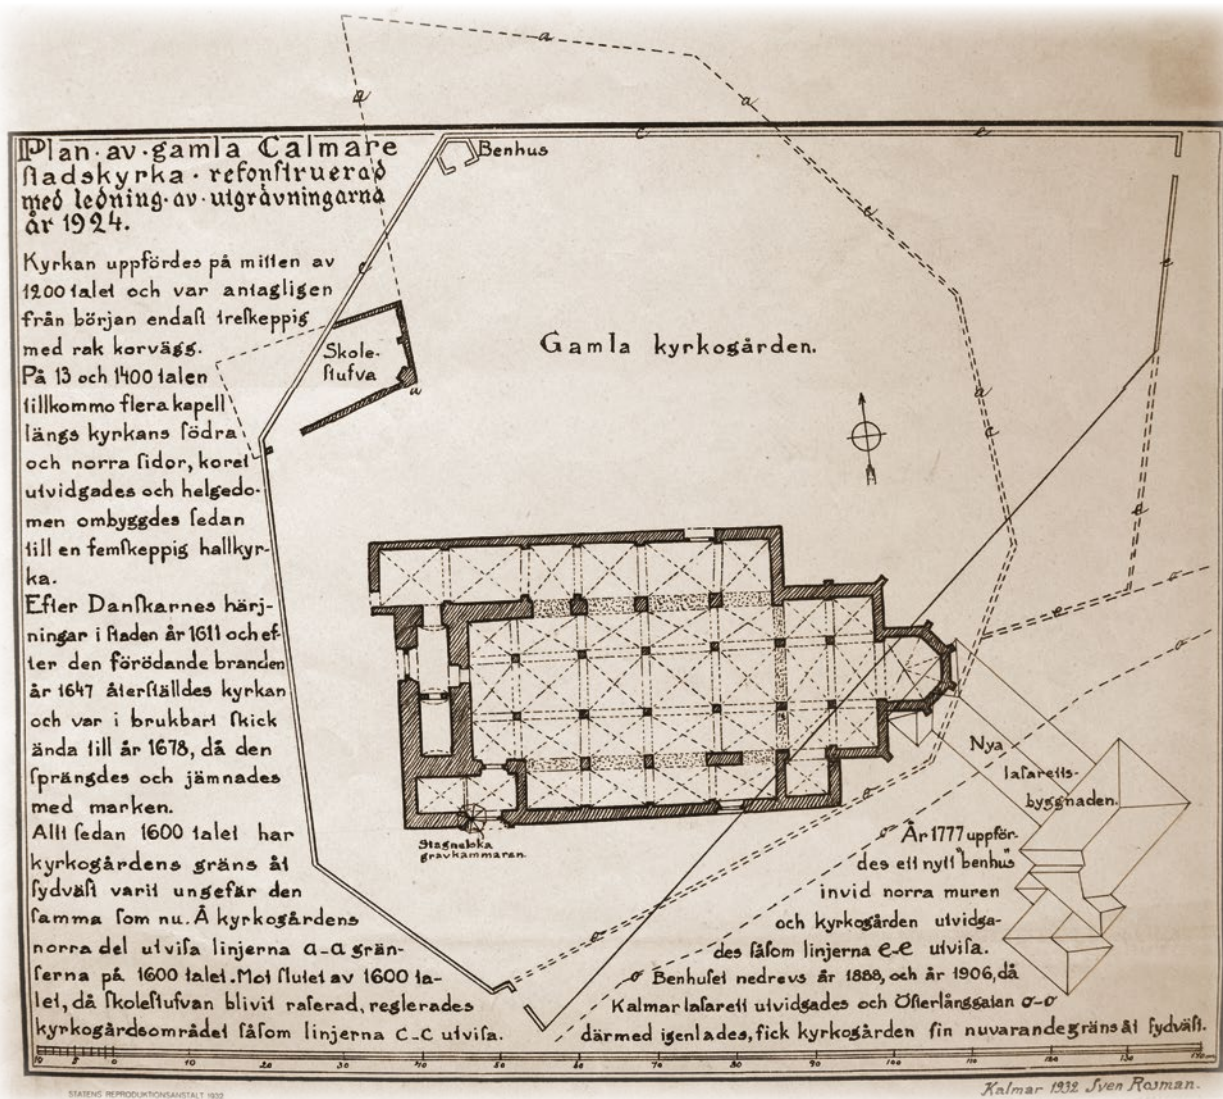 Plan·av·gamla Calmare
ſtadskyrka·rekonſtruerad
med ledning·av·utgrävningarna
år 1924.
Kyrkan uppfördes på mitten av
1200 talet och var antagligen
från början endaſt treſkeppig
med rak korvägg.
På 13 och 1400 talen
tillkommo flera kapell
längs kyrkans ſödra
och norra ſidor, koret
utvidgades och helgedo-
men ombyggdes ſedan
till en femſkeppig hallkyr-
ka.
Efter Danſkarnes härj-
ningar i ſtaden år 1611 och ef-
ter den förödande branden
år 1647 återſtälldes kyrkan
och var i brukbart ſkick
ända till år 1678, då den
ſprängdes och jämnades
med marken.
Allt ſedan 1600 talet har
kyrkogårdens gräns åt
ſydväſt varit ungefär den
ſamma ſom nu. Å kyrkogårdens
norra del utviſa linjerna a-a grän-
ſerna på 1600 talet. Mot ſlutet av 1600 ta-
let, då ſkoleſtufvan blivit raſerad, reglerades
kyrkogårdsområdet ſåſom linjerna C-C utviſa.
Benhus
Skole-
ſtufva
Gamla kyrkogården.
Stagnelſka
gravkammaren.
Nya
laſaretts-
byggnaden.
År 1777 uppför-
des ett nytt "benhus"
invid norra muren
och kyrkogården utvidga-
des ſåſom linjerna e-e utviſa.
Benhuſet nedrevs år 1888, och år 1906, då
Kalmar laſarett utvidgades och Öſterlånggatan o-o
därmed igenlades, fick kyrkogården ſin nuvarande gräns åt ſydväſt.
a
a
a
c
e
c
e
a
c
e
a
e
o
o
o
o
10 5 0 10 20 30 40 50 60 70 80 90 100 110 120 130 140 m
STATENS REPRODUKTIONSANSTALT 1932
Kalmar 1932 Sven Rosman.